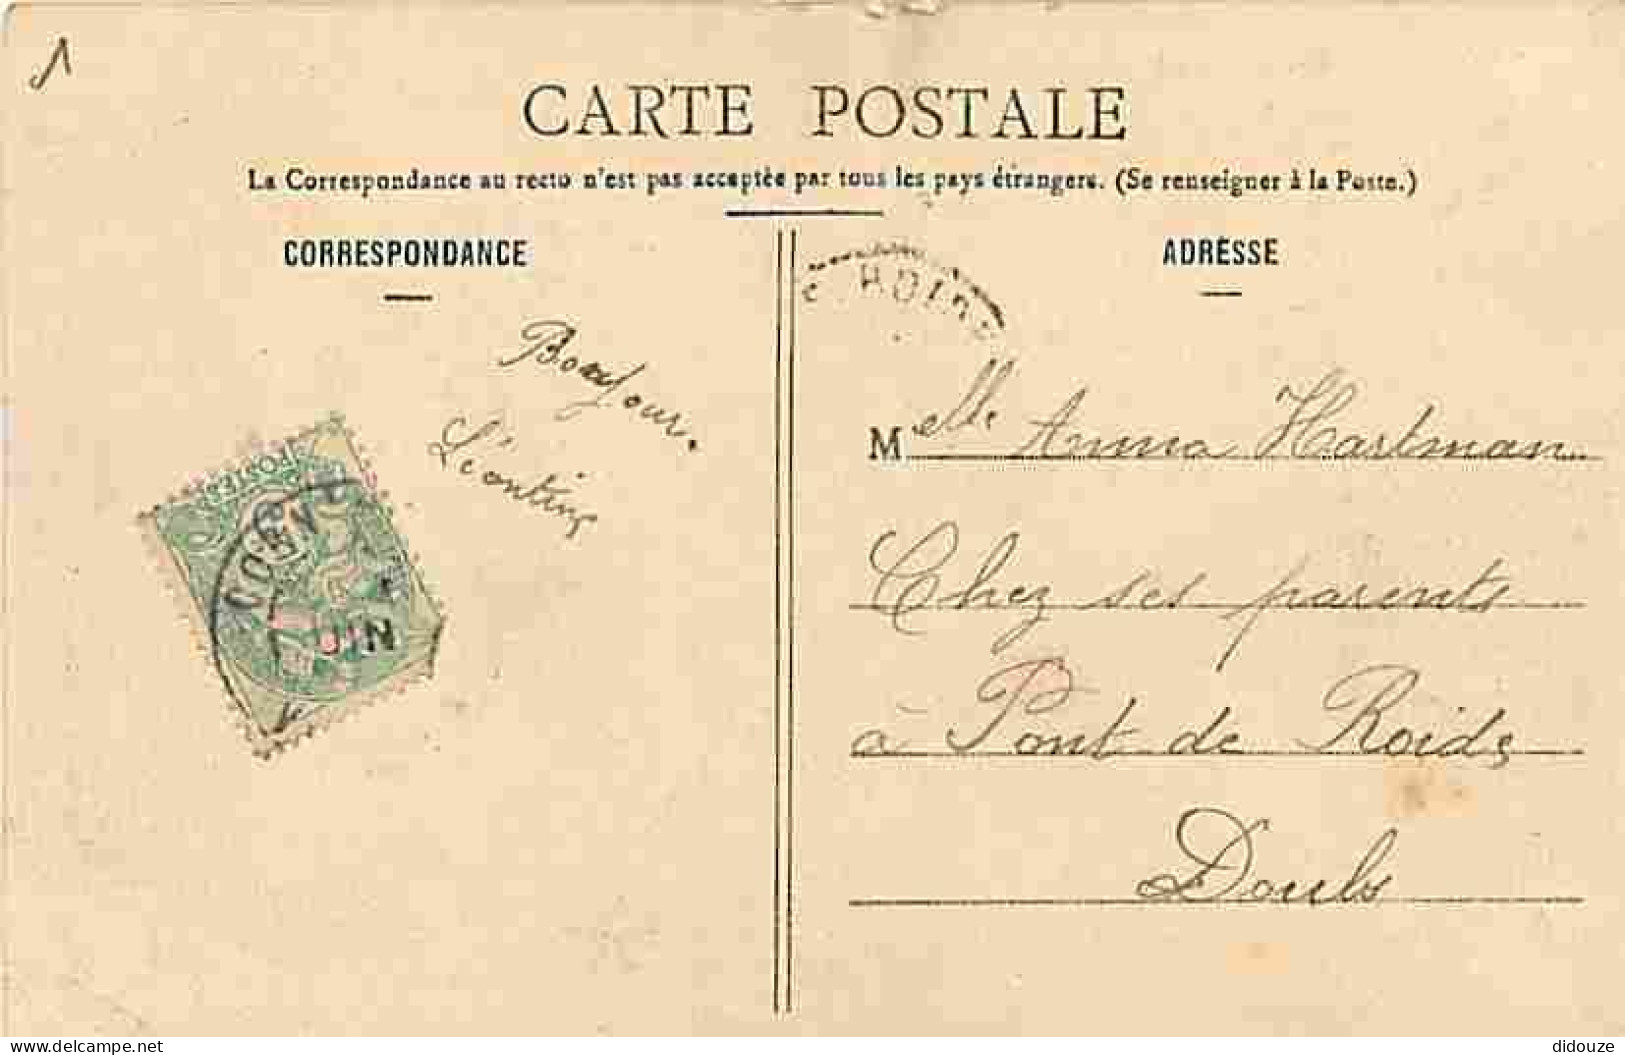 1
CARTE POSTALE
La Correspondance au recto n'est pas acceptée par tous les pays étrangers. (Se renseigner à la Poste.)
CORRESPONDANCE
ADRESSE
Bonjour.
Léontine
POSTES
JUIN
Melle Anna Hartman
Chez ses parents
à Pont de Roide
Doubs
Delcampe.net
didouze